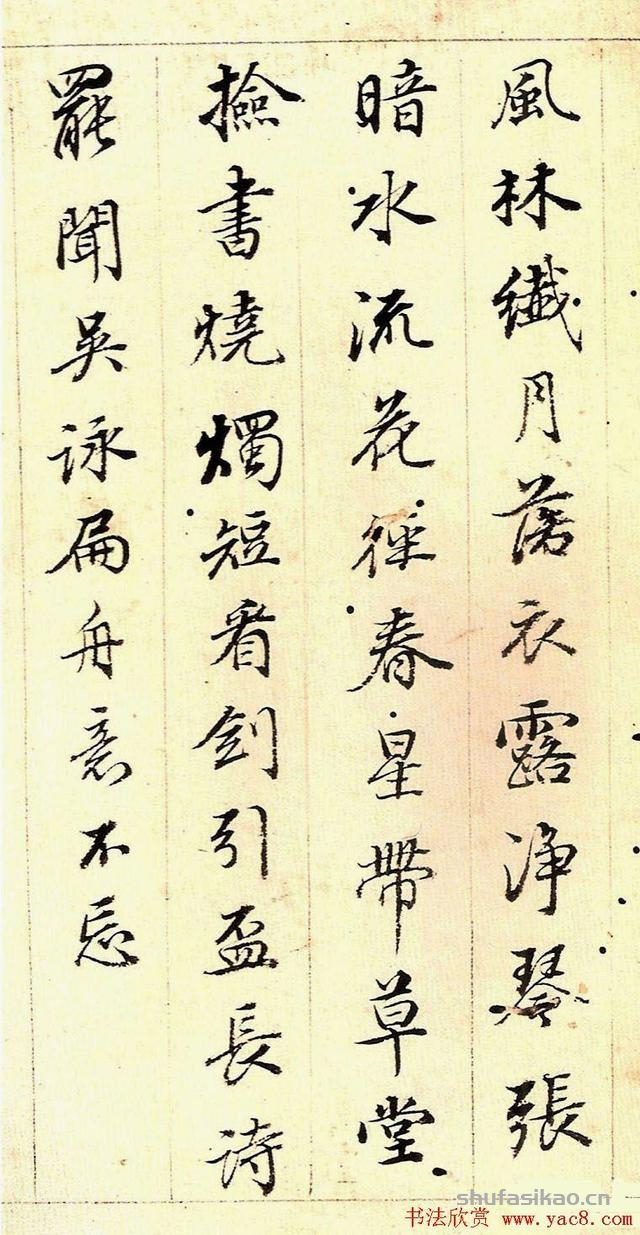 風林纖月落衣露浄琴張
暗水流花徑春星帶草堂
撿書燒燭短看劍引盃長詩
罷聞吳詠扁舟意不忘
shufasikao.cn
书法欣赏 www.yac8.com